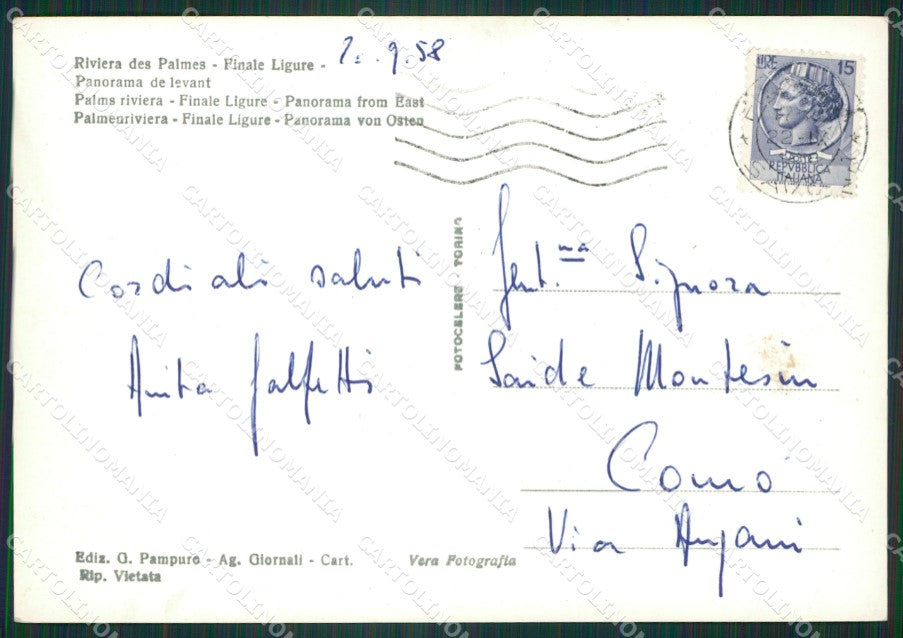 Riviera des Palmes - Finale Ligure - 2. 9. 58
Panorama de levant
Palms riviera - Finale Ligure - Panorama from East
Palmenriviera - Finale Ligure - Panorama von Osten
LIRE 15
POSTE
REPVBBLICA
ITALIANA
FOTOCELERE - TORINO
Cordiali saluti
Anita Galfetti
Gent.ma Signora
Saide Montesin
Como
Via
Ediz. G. Pampuro - Ag. Giornali - Cart.
Rip. Vietata
Vera Fotografia
CARTOLINOMANIA